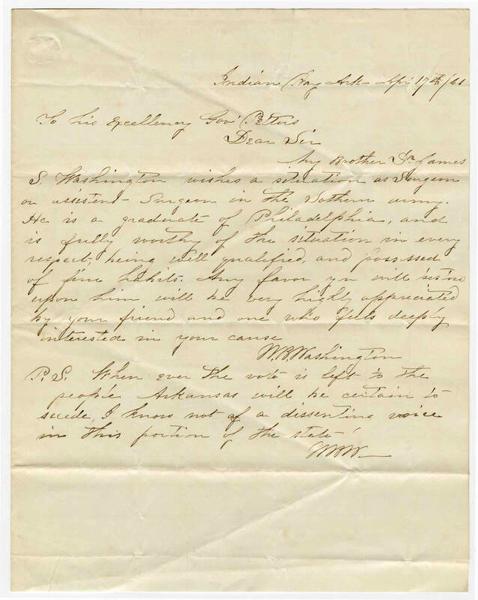 Indian Bay Ark Apr 17th/61
To his Excellency Gov
Dear Sir
My Brother Dr James
S. Washington wishes a situation as Surgeon
or assistent Surgeon in the Sothern army.
He is a graduate of Philadelphia, and
is fully worthy of the situation in every
respect, being well qualified, and possessed
of fine habits. Any favor you will bestow
upon him will be very highly appreciated
by your friend and one who feels deeply
interested in your cause
W.H. Washington
P.S. When ever the vote is left to the
people Arkansas will be certain to
secede, I know not of a dissenting voice
in this portion of the state!
WHW